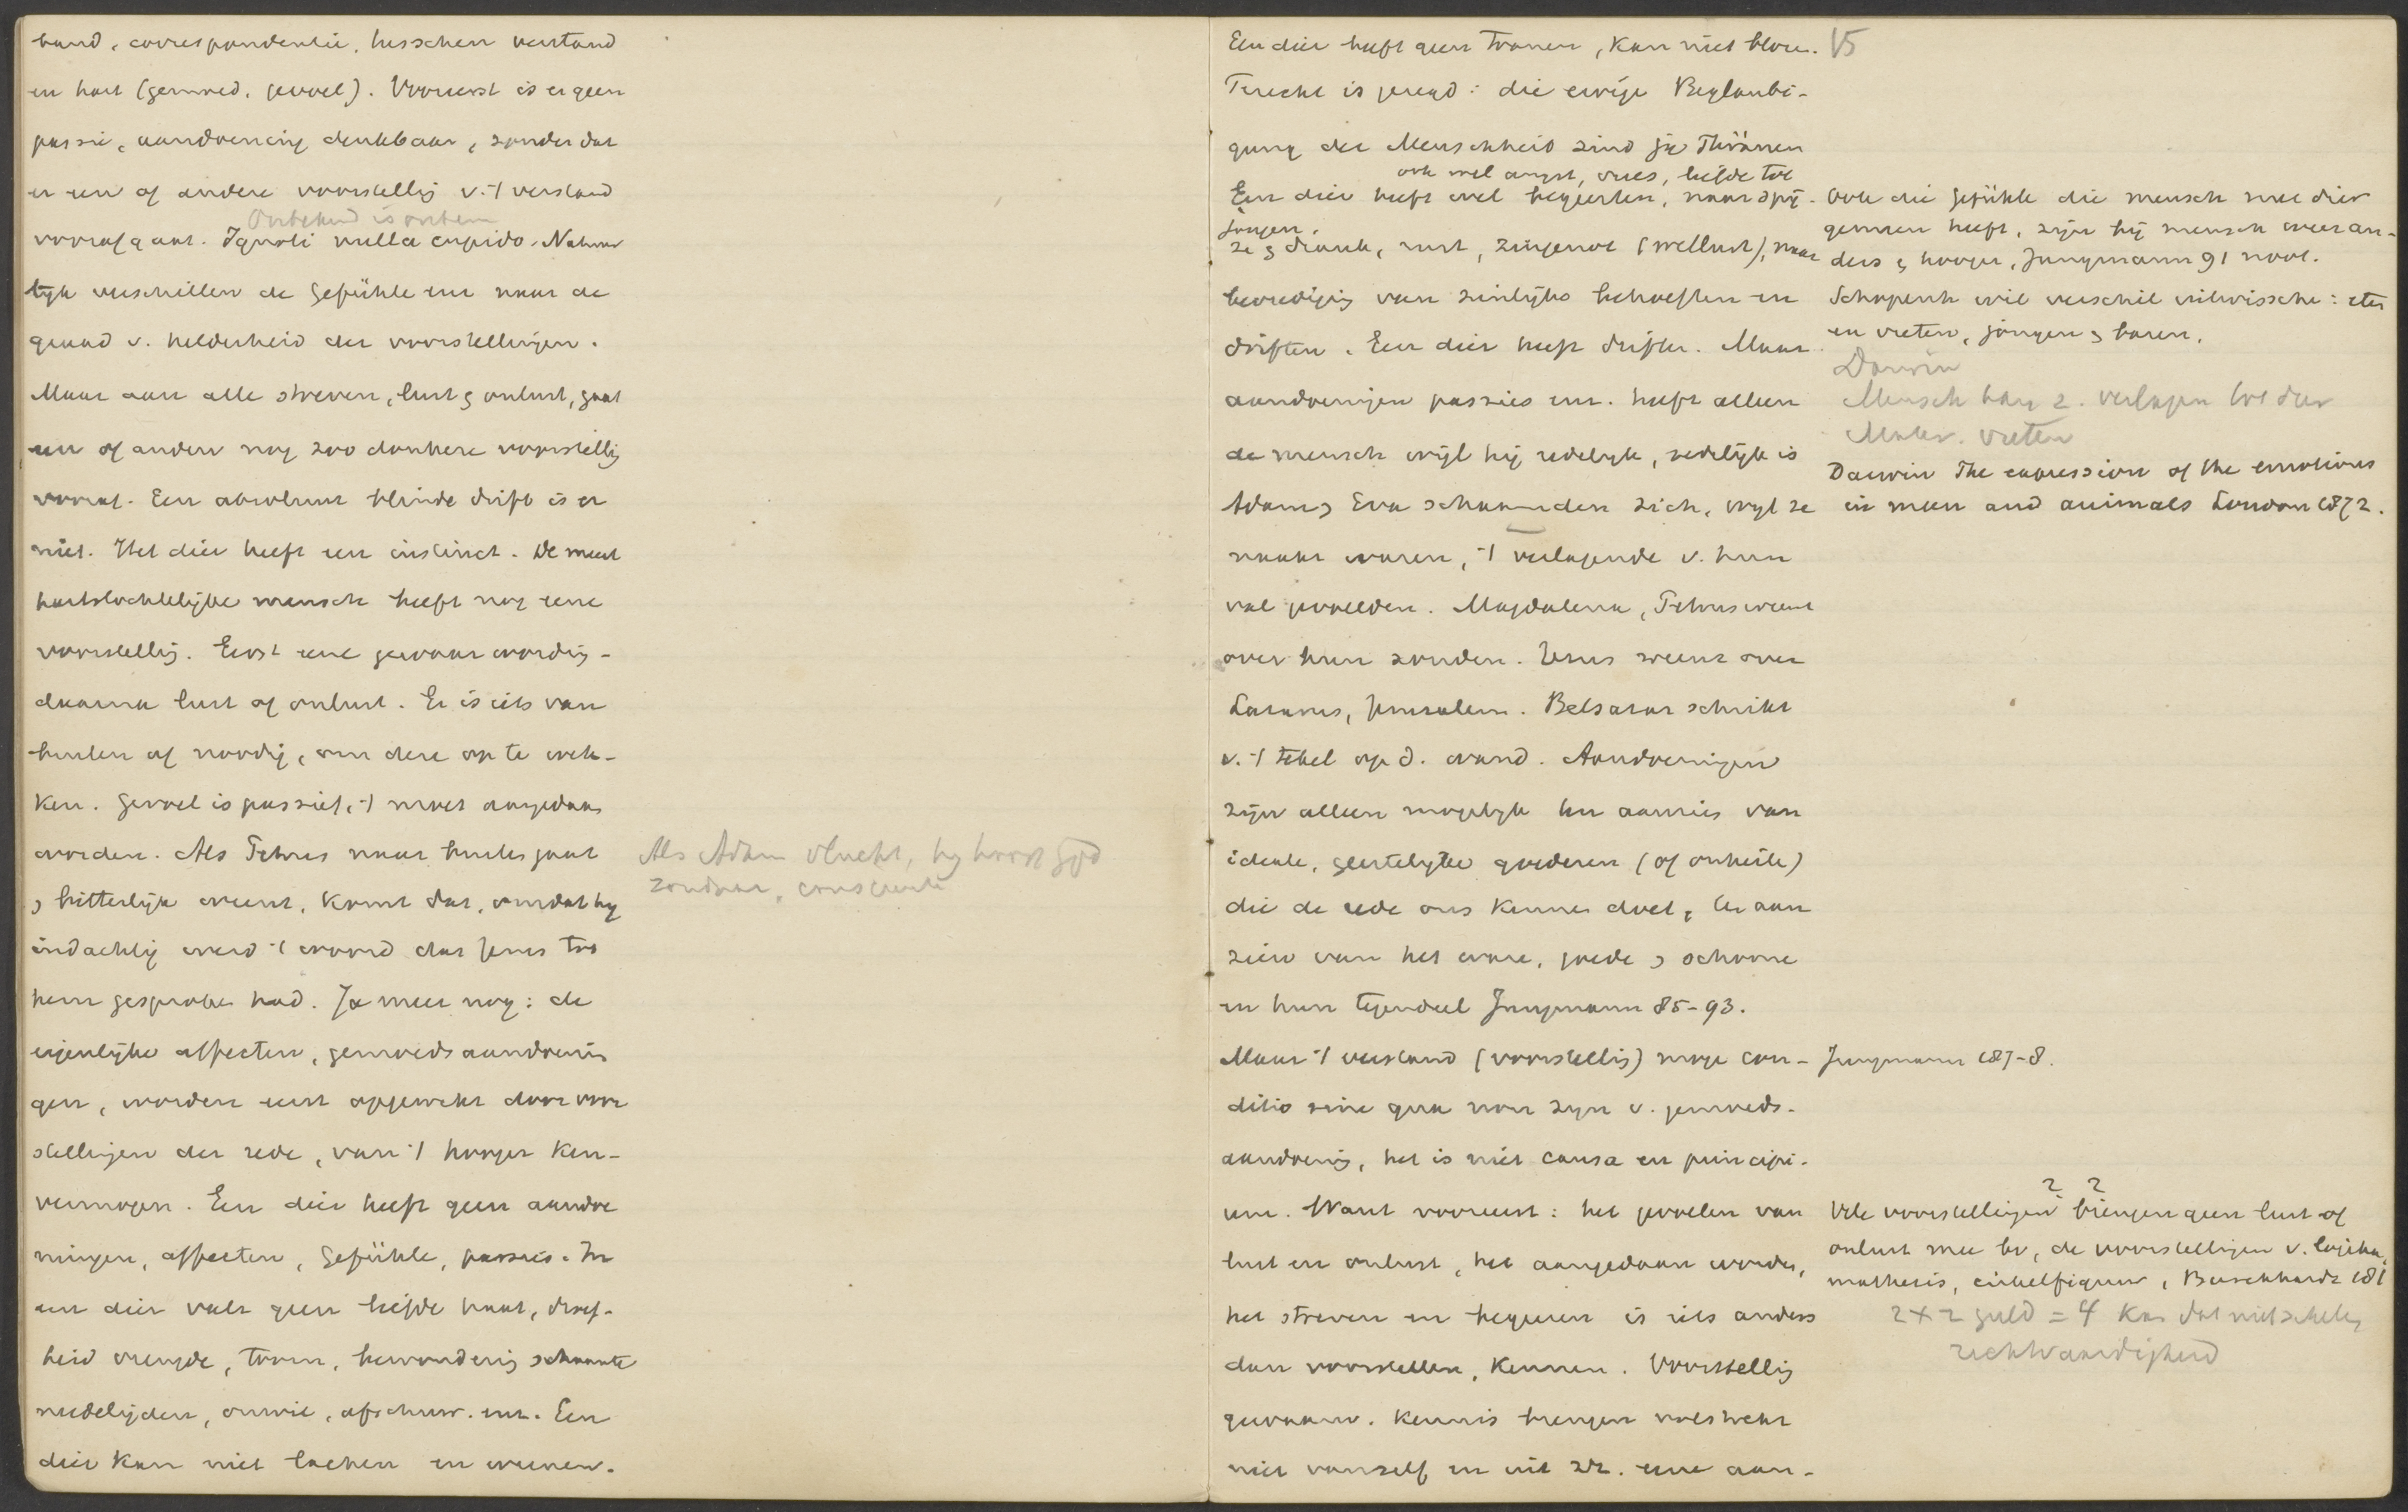 band, correspondentie, tusschen verstand
en hart (gemoed, gevoel). Vooreerst is er geen
passie, aandoening denkbaar, zonder dat
er een of andere voorstellig v. 't verstand
Onbekend is onbem
voorafgaat. Ignoti nulla cupido. Natuur
lijk verschillen de Gefühle enz naar de
graad v. helderheid der voorstellingen.
Maar aan alle streven, lust & onlust, gaat
een of andere nog zoo donkere voorstellig
vooraf. Een absoluut blinde drift is er
niet. Het dier heeft een instinct. De meest
hartstochtelijke mensch heeft nog eene
voorstellig. Eerst eene gewaarwordig -
daarna lust of onlust. Er is iets van
buiten af noodig, om deze op te wek-
ken. Gevoel is passief, 't moet aangedaan
worden. Als Petrus naar buiten gaat
& bitterlijk weent, komt dat, omdat hij
indachtig werd 't woord dat Jezus tot
hem gesproken had. Ja meer nog: de
eigenlijke affecten, gemoedsaandoenin
gen, worden eerst opgewekt door voor
stellingen der rede, van 't hooger ken-
vermogen. Een dier heeft geen aandoe
ningen, affecten, Gefühle, passies. In
een dier valt geen liefde haat, droef-
heid vreugde, toorn, bewonderig schaamte
medelijden, onwil, afschuw. enz. Een
dier kan niet lachen en weenen.
Als Adam vlucht, hij hoort God
zondaar, conscientie
Een dier heeft geen tranen, kan niet bloze.
15
Terecht is gezegd: die ewige Beglaubi-
gung der Menschheid sind ja Thränen
ook wel angst, vrees, liefde tot
Een dier heeft wel begeerten, naar spij-
jongen.
ze & drank, rust, zingenot (wellust), naar
bevredigig van zinlijke behoeften en
driften. Een dier heeft driften. Maar
aandoeningen passies enz. heeft alleen
de mensch wijl hij redelijk, zedelijk is
Adam & Eva schaamden zich, wijl ze
naakt waren, 't verlagende v. hun
val gevoelden. Magdalena, Petrus weent
over hun zonden. Jezus weent over
Lazarus, Jeruzalem. Belsazar schrikt
v. 't tekel op d. wand. Aandoeningen
zijn alleen mogelijk ten aanzien van
ideale, geestelijke goederen (of onheile)
die de rede ons kennen doet, ten aan
zien van het ware, goede & schoone
en hun tegendeel Jungmann 85-93.
Maar 't verstand (voorstellig) moge con-
ditio sine qua non zijn v. gemoeds-
aandoenig, het is niet causa en principi-
um. Want vooreerst: het gevoelen van
lust en onlust, het aangedaan worden,
het streven en begeeren is iets anders
dan voorstellen, kennen. Voorstellig
gewaarw. kennis brengen volstrekt
niet vanzelf en uit zr. eene aan-
Ook die Gefühle die mensch met dier
gemeen heeft, zijn bij mensch weer an-
ders & hooger, Jungmann 91 noot.
Schopenh wil verschil uitwissche: eten
en vreten, jongen & baren.
Darwin
Mensch kan z. verlagen tot dier
Mater. vreten
Darwin The expression of the emotions
in men and animals London 1872.
Jungmann 87-8.
2 2
Vele voorstellingen brengen geen lust of
onlust mee bv, de voorstellingen v. logika,
mathesis, cirkelfiguur, Burckhardt 181
2 + 2 guld = 4 kan dat niet schelen
rechtvaardigheid